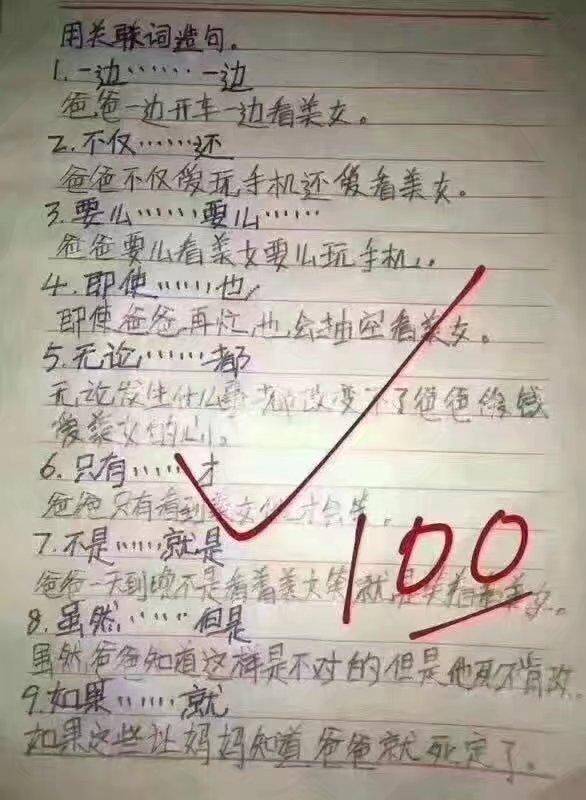 用关联词造句。
1.一边……一边
爸爸一边开车一边看美女。
2.不仅……还
爸爸不仅爱玩手机还爱看美女。
3.要么……要么……
爸爸要么看美女要么玩手机。
4.即使……也
即使爸爸再忙也会抽空看美女。
5.无论……都
无论发生什么事都改变不了爸爸
爱美女的心。
6.只有……才
爸爸只有看到美女他才会笑。
7.不是……就是
爸爸一天到晚不是看着美女笑就是美女。
8.虽然……但是
虽然爸爸知道这样是不对的但是他死不肯改
9.如果……就
如果这些让妈妈知道爸爸就死定了。
100